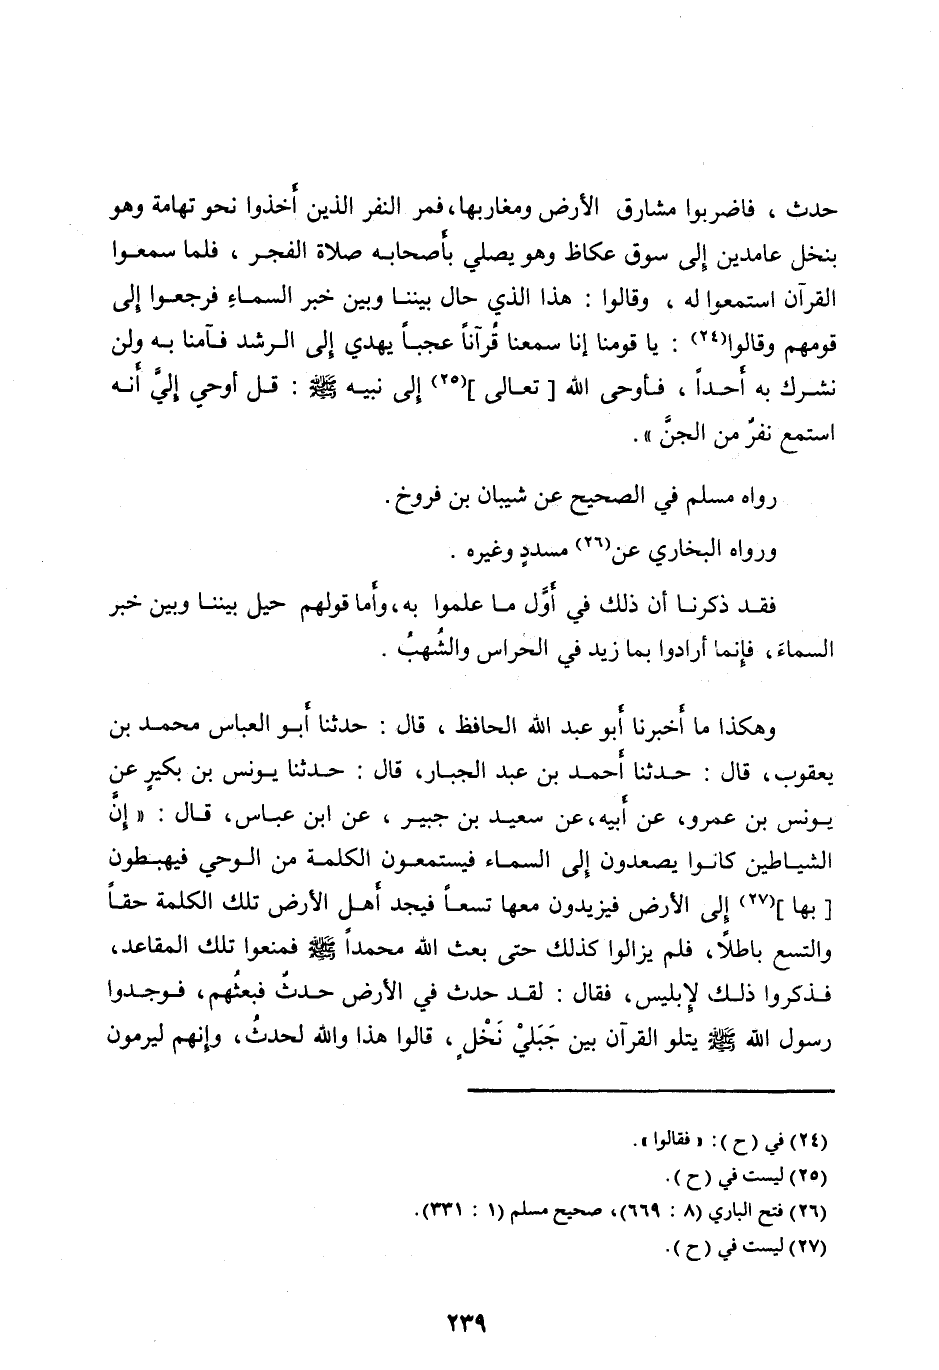 حدث ، فاضربوا مشارق الأرض ومغاربها، فمر النفر الذين أَخذوا نحو تهامة وهو
بنخل عامدين إلى سوق عكاظ وهو يصلي بأَصحابه صلاة الفجر ، فلما سمعوا
القرآن استمعوا له ، وقالوا : هذا الذي حال بيننا وبين خبر السماءِ فرجعوا إلى
قومهم وقالوا(٢٤) : يا قومنا إنا سمعنا قُرآناً عجباً يهدي إلى الرشد فآمنا به ولن
نشرك به أَحداً ، فأوحى الله [ تعالى ](٢٥) إلى نبيه ﷺ : قل أوحي إليَّ أَنه
استمع نفرٌ من الجنَّ » .
رواه مسلم في الصحيح عن شيبان بن فروخ .
ورواه البخاري عن(٢٦) مسددٍ وغيره .
فقد ذكرنا أن ذلك في أَوَّل ما علموا به، وأَما قولهم حيل بيننا وبين خبر
السماءَ، فإنما أرادوا بما زيد في الحراس والشُهبُ .
وهكذا ما أَخبرنا أَبو عبد الله الحافظ ، قال : حدثنا أَبو العباس محمد بن
يعقوب، قال : حدثنا أَحمد بن عبد الجبار، قال : حدثنا يونس بن بكيرٍ عن
يونس بن عمرو، عن أَبيه، عن سعيد بن جبير ، عن ابن عباس، قال : « إنَّ
الشياطين كانوا يصعدون إلى السماء فيستمعون الكلمة من الوحي فيهبطون
[ بها ](٢٧) إلى الأرض فيزيدون معها تسعاً فيجد أَهل الأرض تلك الكلمة حقاً
والتسع باطلاً، فلم يزالوا كذلك حتى بعث الله محمداً ﷺ فمنعوا تلك المقاعد،
فذكروا ذلك لإبليس، فقال : لقد حدث في الأرض حدثٌ فبعثُهم، فوجدوا
رسول الله ﷺ يتلو القرآن بين جَبَلَيْ نَخْلٍ ، قالوا هذا والله لحدثُ، وإنهم ليرمون
(٢٤) في (ح): « فقالوا ».
(٢٥) ليست في (ح).
(٢٦) فتح الباري (٨ : ٦٦٩)، صحيح مسلم (١ : ٣٣١).
(٢٧) ليست في (ح).
٢٣٩